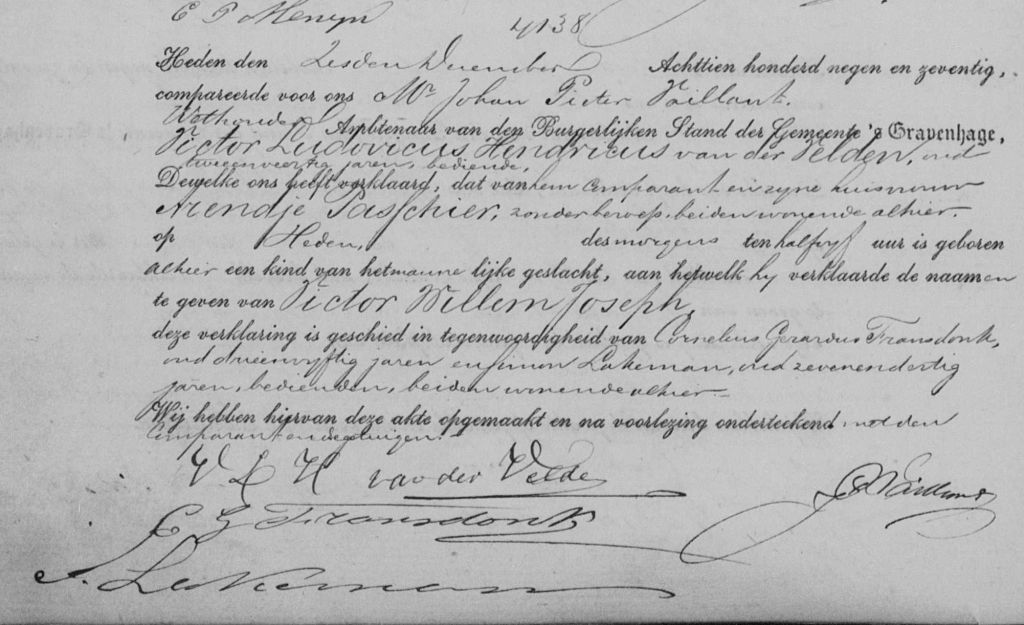 C P Menyn
4138
Heden den Zesden December Achttien honderd negen en zeventig,
compareerde voor ons Mr. Johan Pieter Vaillant.
Wethouder Ambtenaar van den Burgerlijken Stand der Gemeente 's Gravenhage,
Victor Ludovicus Hendricus van der Velden, oud
jaren, bediende,
Dewelke ons heeft verklaard, dat van hem Comparant en zyne huisvrouw
Arendje Paschier, zonder beroep, beiden wonende alhier.
op Heden, des morgens ten half vyf uur is geboren
alhier een kind van het manne lijke geslacht, aan hetwelk hy verklaarde de naamen
te geven van Victor Willem Joseph,
deze verklaring is geschied in tegenwoordigheid van Cornelius Gerardus Fransdonk,
oud drieenvyftig jaren en Simon Lakeman, oud zevenendertig
jaren, bedienden, beiden wonende alhier
Wij hebben hiervan deze akte opgemaakt en na voorlezing onderteekend met den
Comparant en de getuigen.
V L H van der Velde
J P Vaillant
C G Fransdonk
S. Lakeman